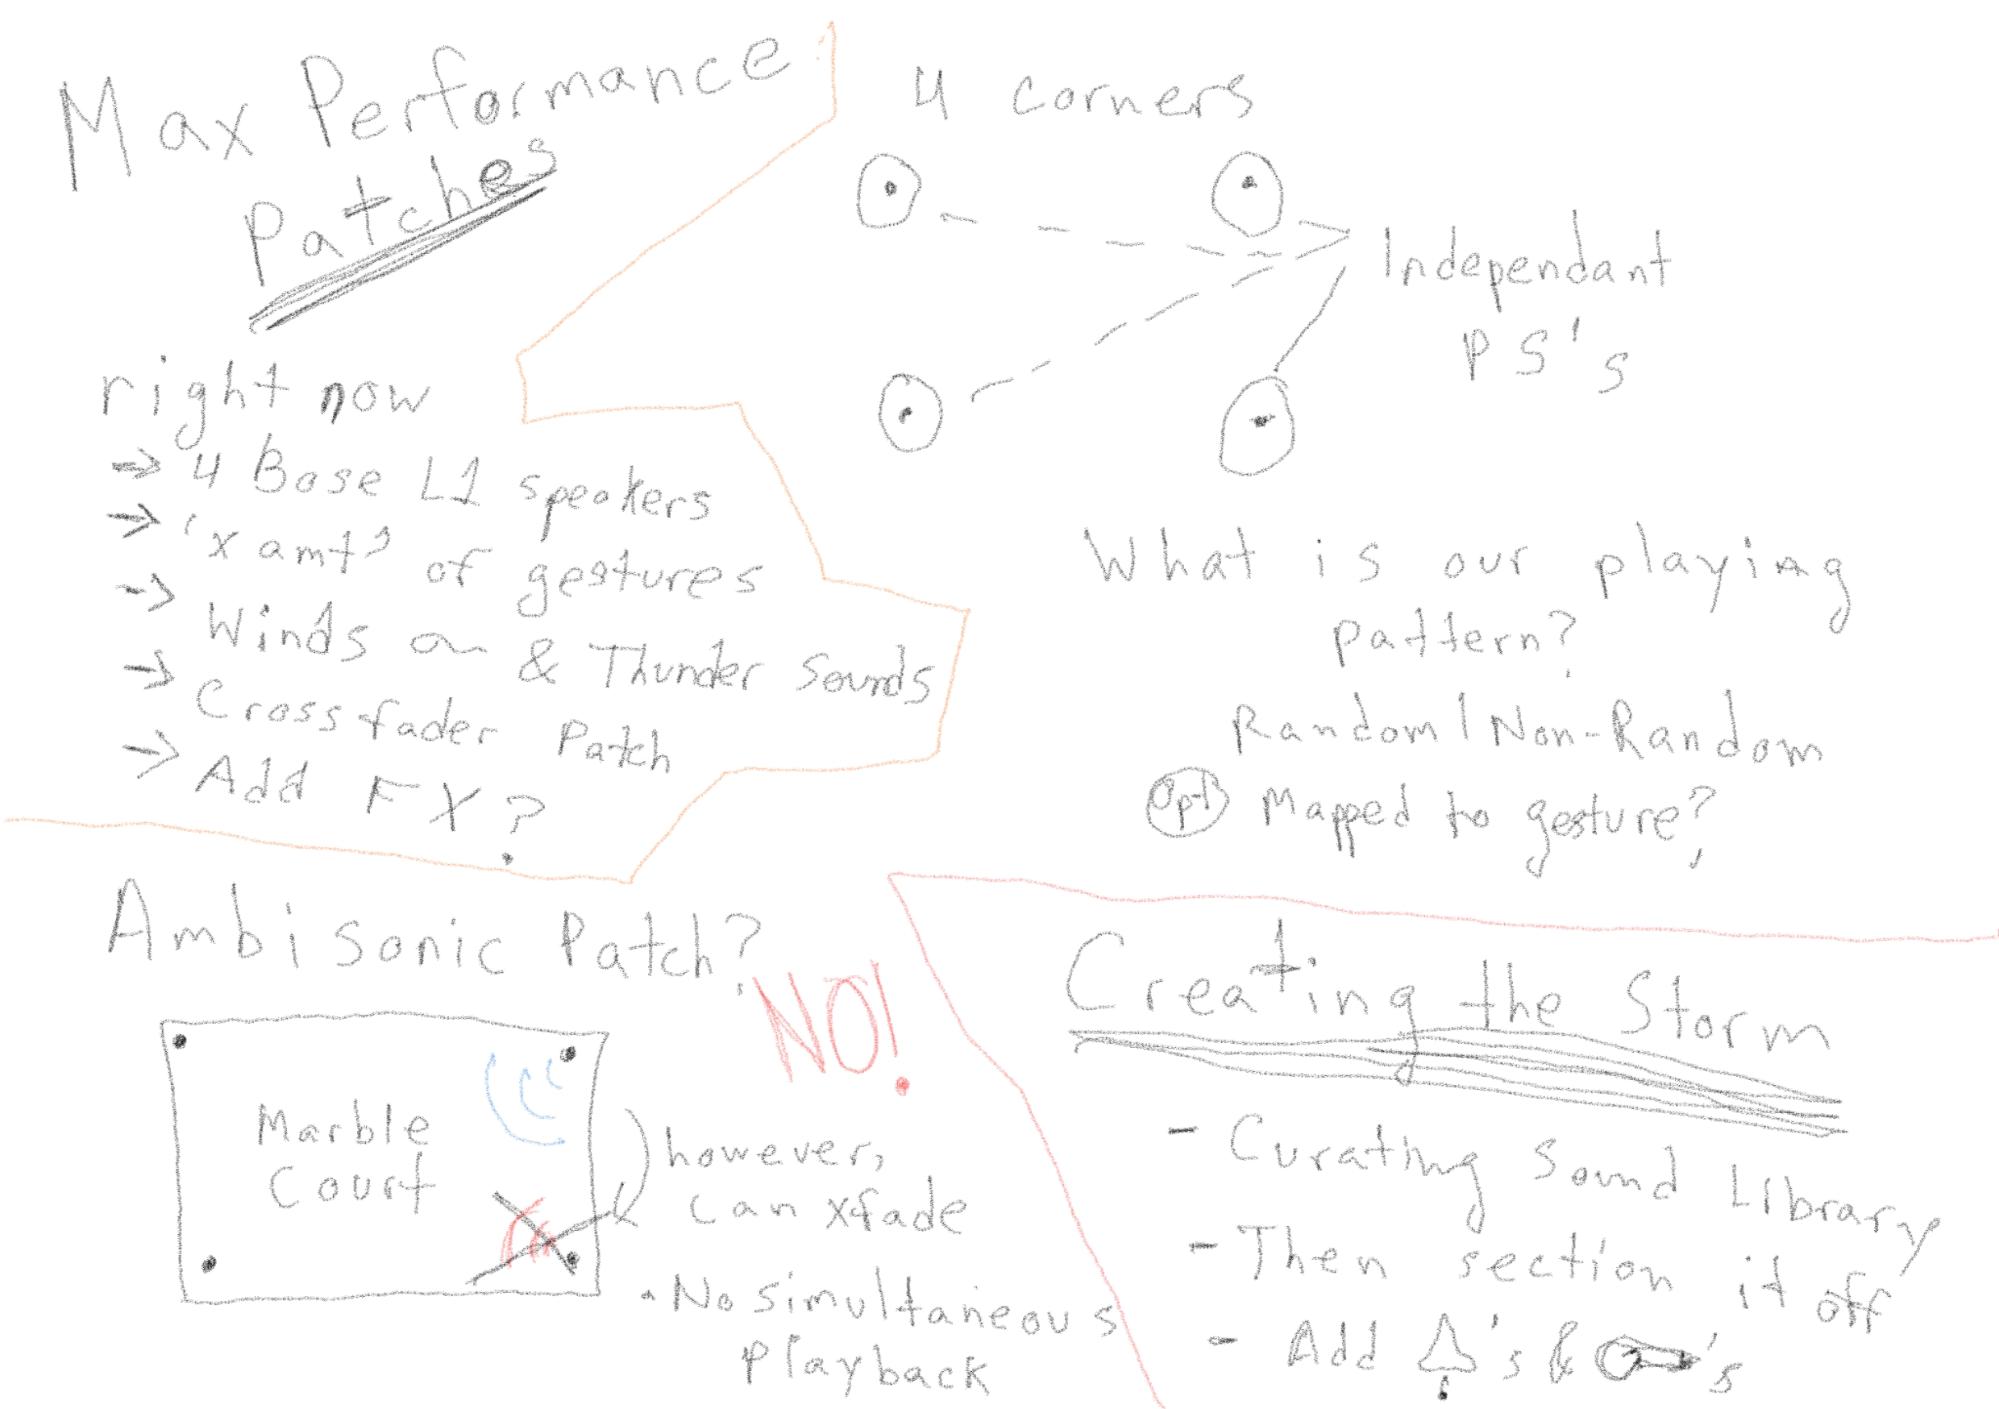 Max Performance
Patches
right now
→ 4 Bose L1 speakers
→ 'x amt' of gestures
→ Winds on & Thunder Sounds
→ Crossfader Patch
→ Add FX?
4 corners
Independant
PS's
What is our playing
pattern?
Random / Non-Random
Opt Mapped to gesture?
Ambisonic Patch?
NO!
Marble
Court
however,
can xfade
• No simultaneous
playback
Creating the Storm
- Curating Sound Library
- Then section it off
- Add 's & 's